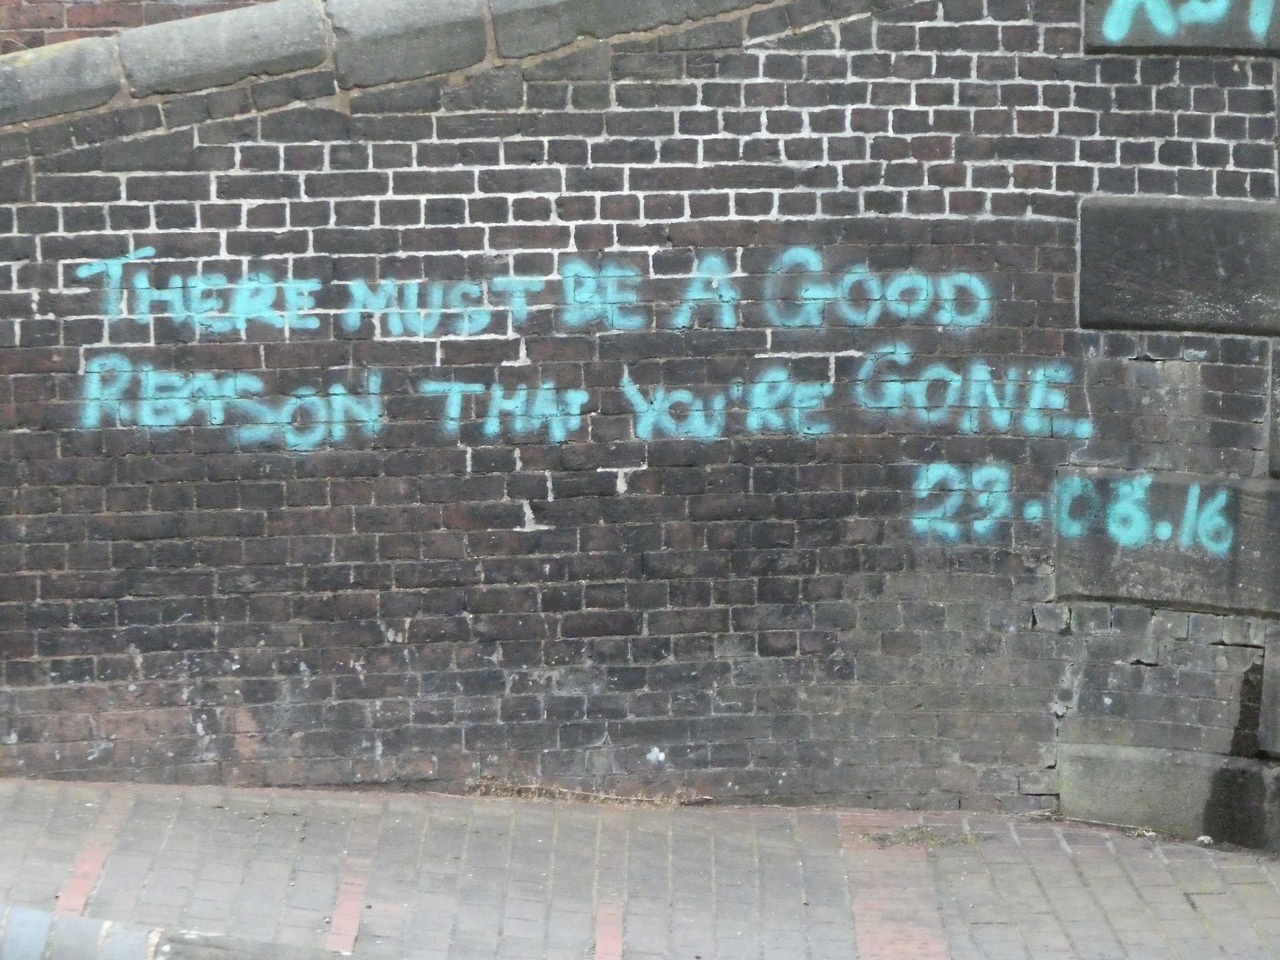 There must be a Good
Reason that you're Gone.
23.08.16